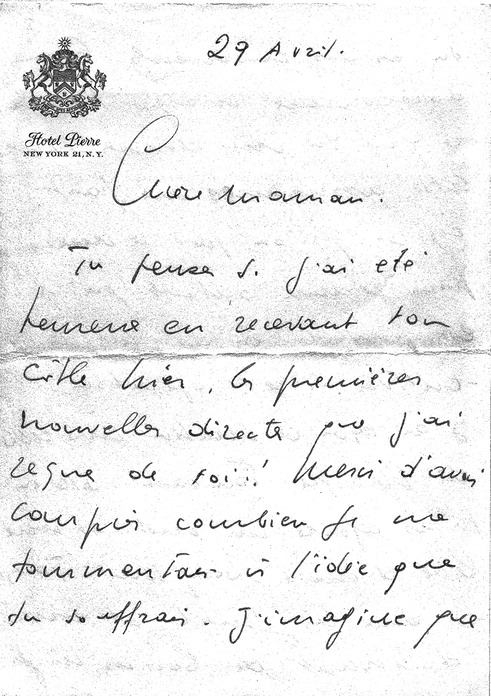 29 Avril.
Hotel Pierre
NEW YORK 21, N.Y.
Chère maman.
Tu penses si j'ai été
heureuse en recevant ton
câble hier, les premières
nouvelles directes que j'ai
reçue de toi!! Merci d'avoir
compris combien je me
tourmentais à l'idée que
tu souffrais. J'imagine que